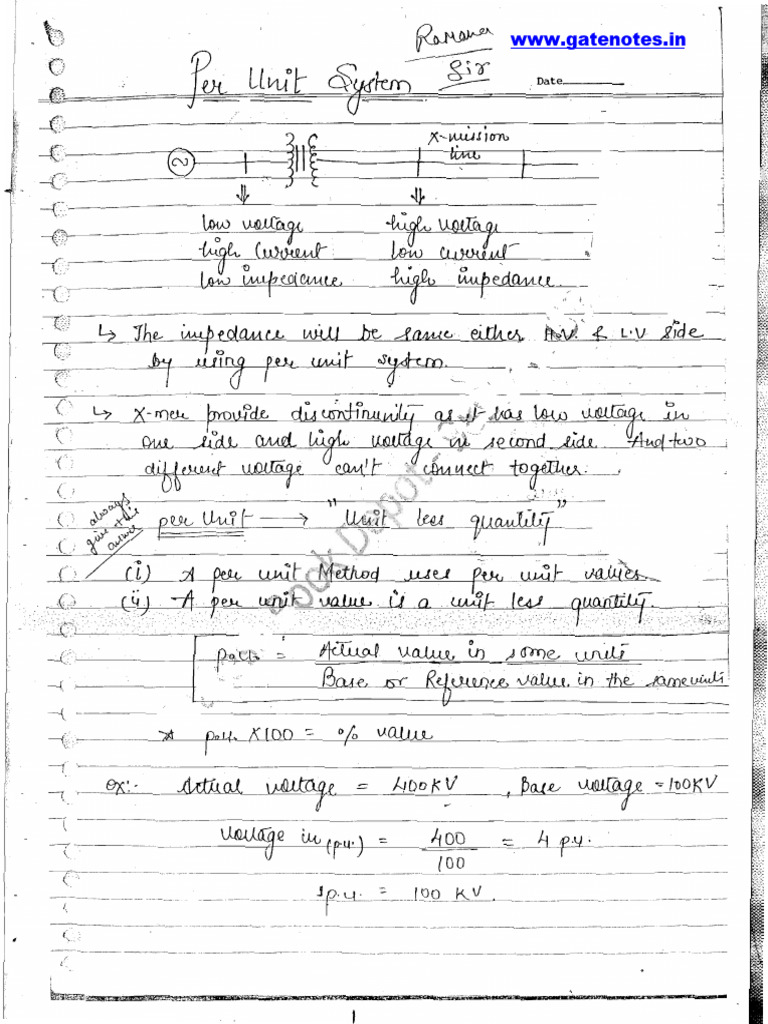 Ramana
Sir
www.gatenotes.in
Per Unit System
Date
X-mission
line
low voltage high voltage
high current low current
low impedance high impedance.
↳ The impedance will be same either H.V. & L.V side
by using per unit system.
↳ X-mer provide discontinunity as it has low voltage in
one side and high voltage in second side. And two
different voltage can't connect together.
always
give this
answer
per Unit → "Unit less quantity"
(i) A per unit Method uses per unit values
(ii) A per unit value is a unit less quantity.
p.u. = Actual value in some units
Base or Reference value in the same units
* p.u. X100 = % value
ex:- Actual voltage = 400KV , Base voltage = 100KV
Voltage in (p.u.) = 400 = 4 p.u.
100
1p.u. = 100 KV.
1